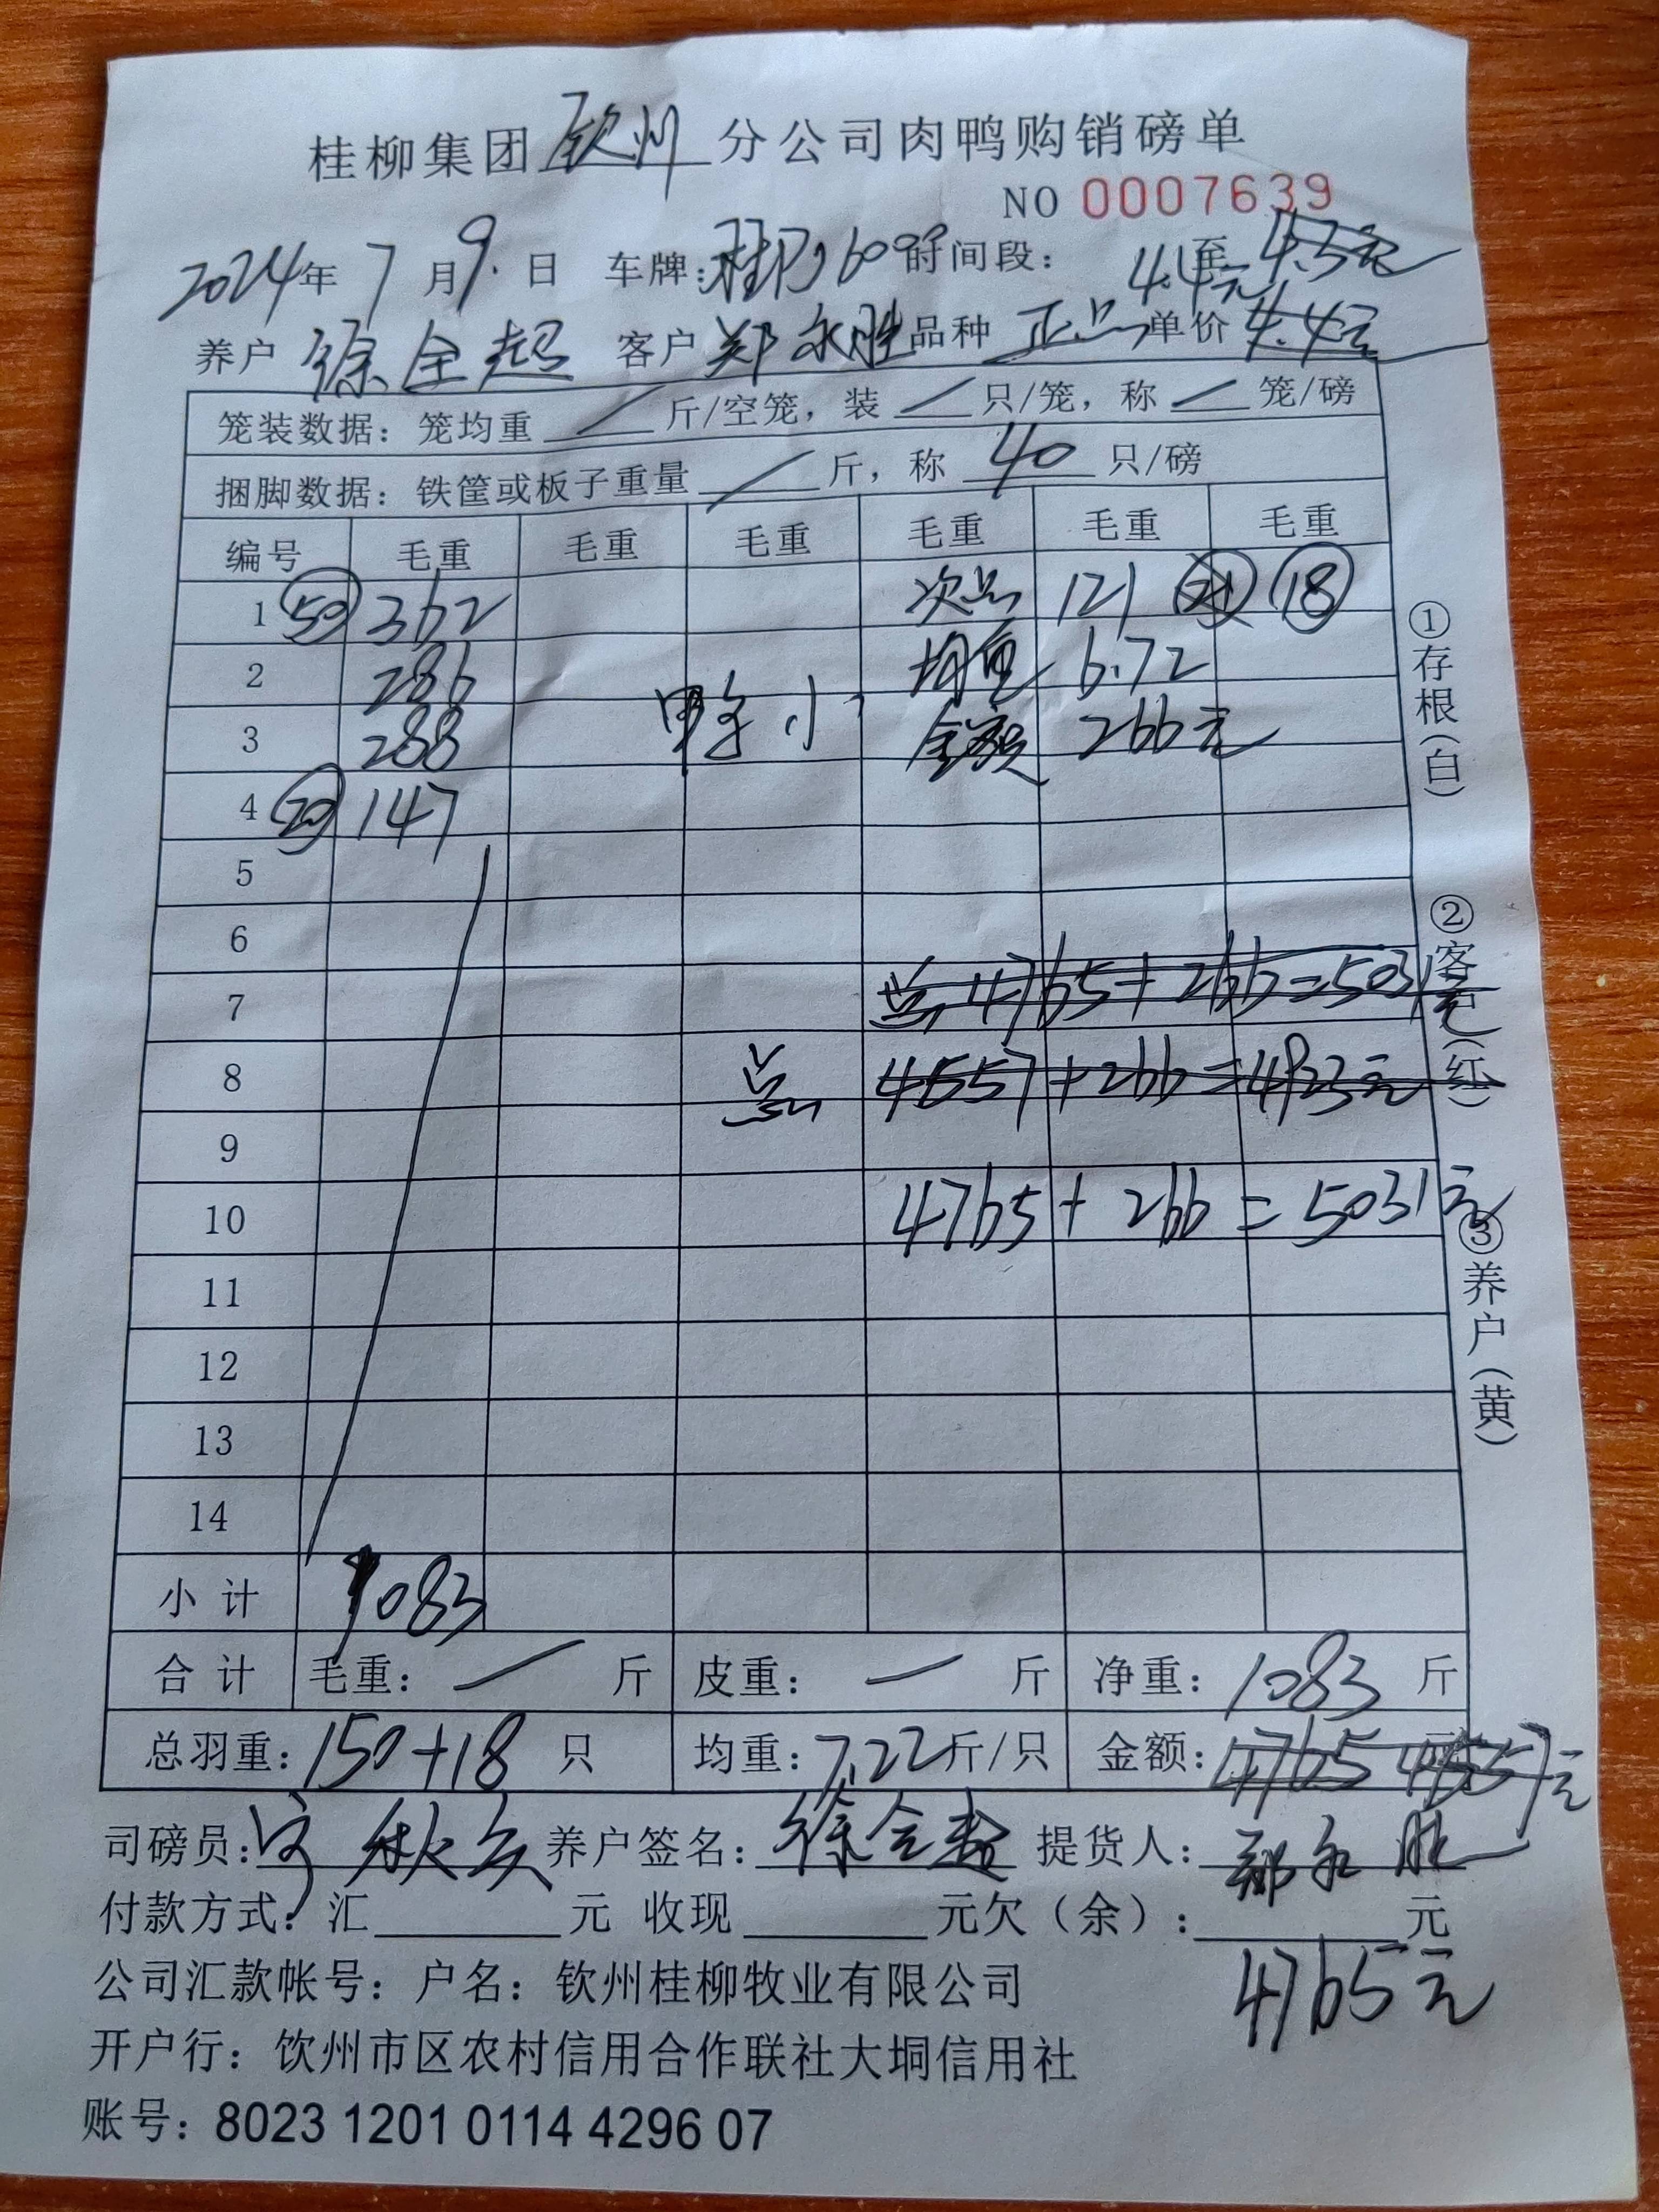 桂柳集团 钦州 分公司肉鸭购销磅单
NO 0007639
2024年 7 月 9 日 车牌： 时间段： 至
4.4元 4.3元
养户 徐全超 客户 郑永胜 品种 正品 单价 4.4元
笼装数据：笼均重 / 斤/空笼，装 / 只/笼，称 / 笼/磅
捆脚数据：铁筐或板子重量 / 斤，称 40 只/磅
编号 毛重 毛重 毛重 毛重 毛重 毛重
1 50 362 次品 121 18
2 286 均重 6.72
3 288 鸭子小 金额 266元
4 20 147
5
6
7 总 4765+266=5031元
8 总 4657+266=4923元
9
10 4765+266=5031元
11
12
13
14
小计 1083
合计 毛重： 一 斤 皮重： 一 斤 净重：1083 斤
总羽重：150+18 只 均重：7.22斤/只 金额：4765 4657元
司磅员： 养户签名：徐全超 提货人：郑永胜
付款方式：汇 元 收现 元欠（余）： 元
4765元
公司汇款帐号：户名：钦州桂柳牧业有限公司
开户行：饮州市区农村信用合作联社大垌信用社
账号：8023 1201 0114 4296 07
①存根（白）
②客户（红）
③养户（黄）